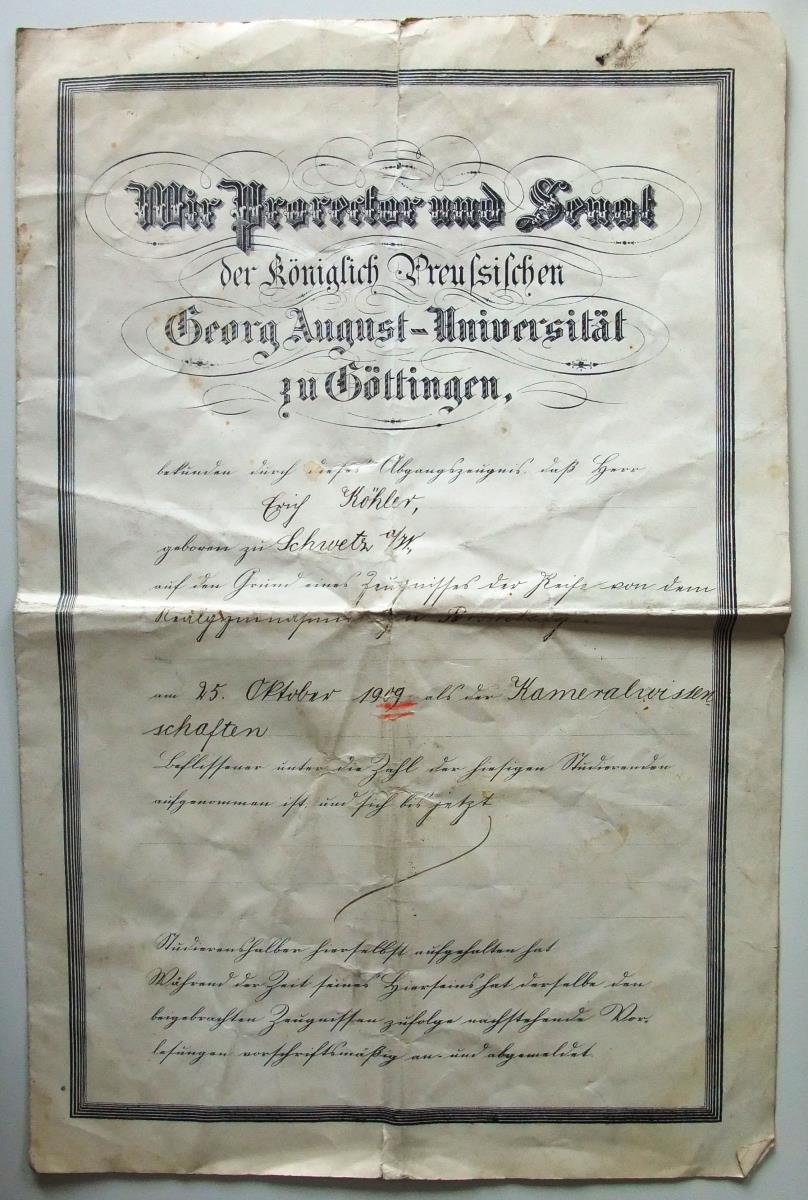 Wir Prorector und Senat
der Königlich Preussischen
Georg August-Universität
zu Göttingen,
bekunden durch dieses Abgangszeugnis, daß Herr
Erich Köhler,
geboren zu Schwetz a/W.,
auf den Grund eines Zeugnisses der Reife von dem
Realgymnasium zu
am 25. Oktober 1909 als der Kameralwissen
schaften
Beflissener unter die Zahl der hiesigen Studierenden
aufgenommen ist, und sich bis jetzt
Studierenshalber hierselbst aufgehalten hat
Während der Zeit seines Hierseins hat derselbe den
beigebrachten Zeugnissen zufolge nachstehende Vor-
lesungen vorschriftsmäßig an- und abgemeldet.